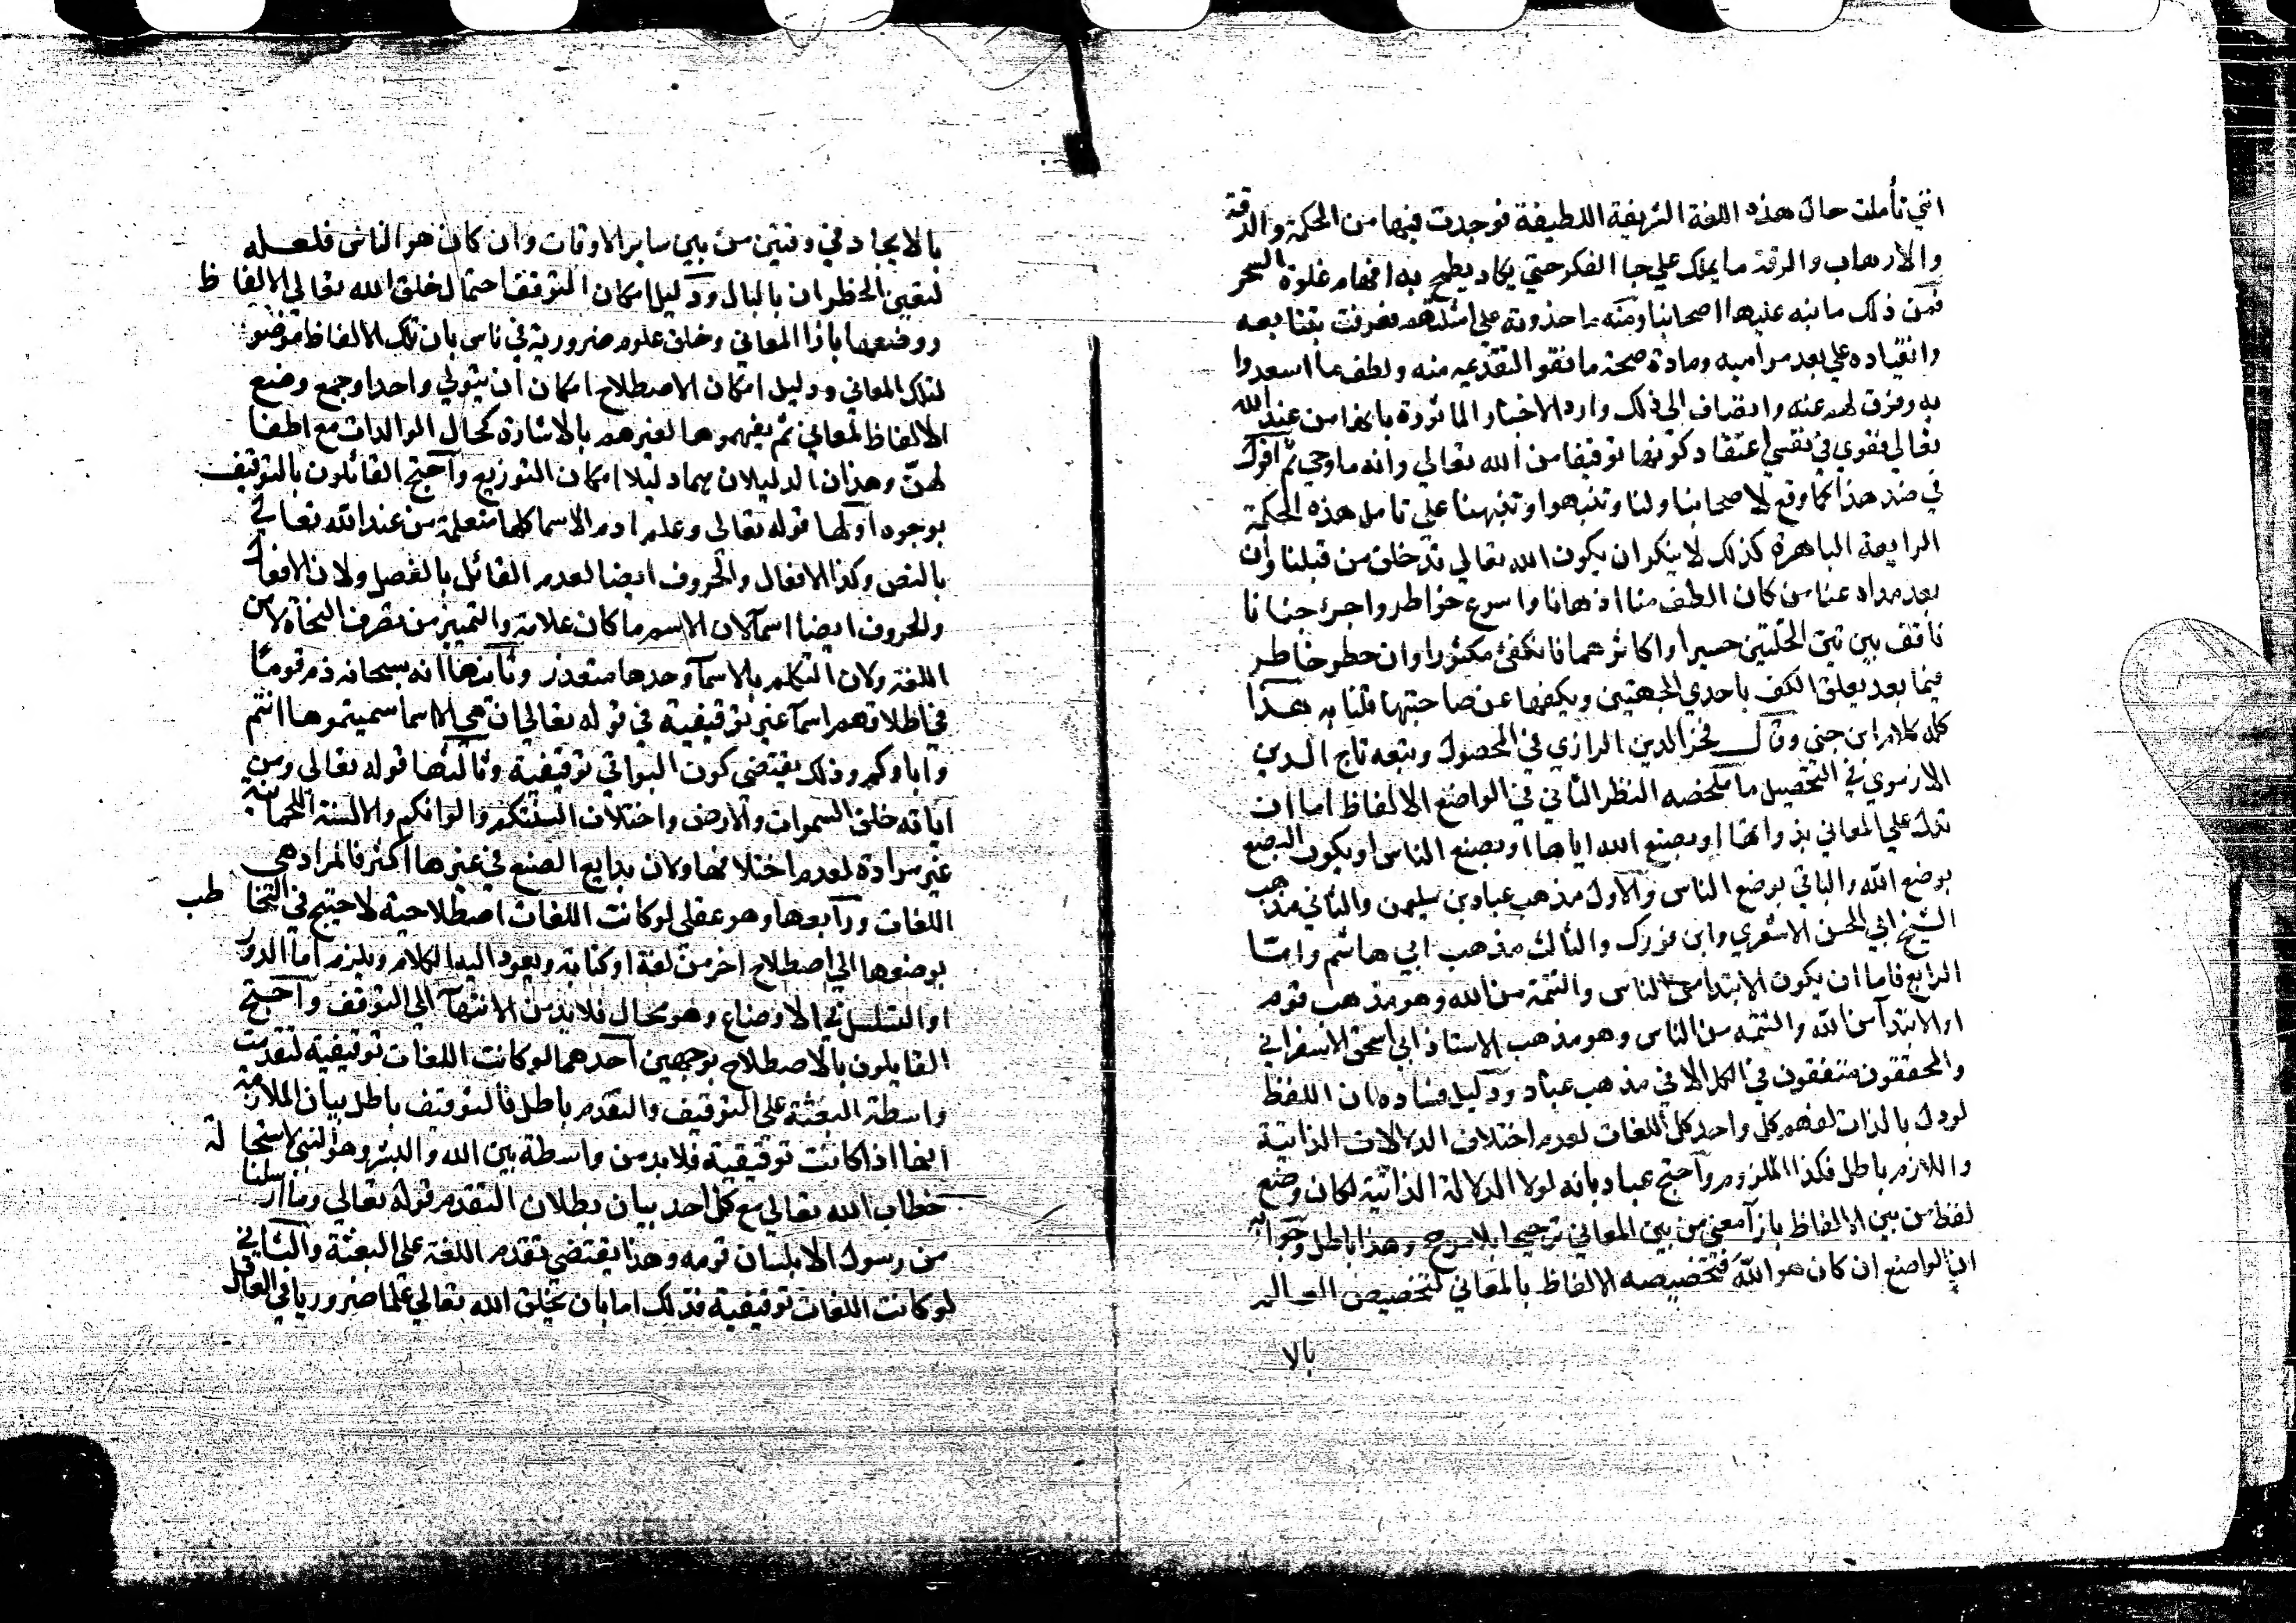 انني تأملت حال هذه اللغة الشريفة اللطيفة فوجدت فيها من الحكمة والدقة
والارهاب والرقة ما يملك علي جا الفكر حتي يكاد يطمح به امام غلوة السحر
فمن ذلك ما نبه عليها اصحابنا ومنه ما حذوته علي امثلتهم فعرفت بتتابعه
وانقياده علي بعد مراميه وماده صحة ما نقوا لتقديمه منه ولطف ما اسعدوا
به وفرق لهم عنه وانضاف الي ذلك وارد الاخبار الماثورة بانها من عند الله
تعالي فقوي في نفسي اعتقاد كونها توقيفا من الله تعالي وانه ما وحي ثم اقول
في ضد هذا كما وقع لاصحابنا ولنا وتنبهوا وتنبهنا علي تامل هذه الحكمة
الرايعة الباهرة كذلك لا ينكر ان يكون الله تعالي قد خلق من قبلنا وان
بعد مداه عنا من كان الطف منا اذهانا واسرع خواطر واجرئ جنانا
فاقف بين تين الخلتين حسيرا واكاثرهما فانكفئ مكثورا وان خطر خاطر
فيما بعد يعلق الكف باحدي الجهتين ويكفها عن صاحبتها قلنا به هذا
كله كلام ابن جني وقال فخر الدين الرازي في المحصول وتبعه تاج الدين
الارموي في التحصيل ما ملخصه النظر الثاني في الواضع الالفاظ اما ان
تدل علي المعاني بذواتها او بوضع الله اياها او بوضع الناس او بكون البعض
بوضع الله والباقي بوضع الناس والاول مذهب عباد بن سليمن والثاني مذهب
الشيخ ابي الحسن الاشعري وابن فورك والثالث مذهب ابي هاشم واما
الرابع فاما ان يكون الابتدا من الناس والتتمة من الله وهو مذهب قوم
او الابتدآ من الله والتتمه من الناس وهو مذهب الاستاذ ابي اسحق الاسفرايني
والمحققون متفقون في الكل الا في مذهب عباد ودليل فساده ان اللفظ
لو دل بالذات لفهم كل واحد كل اللغات لعدم اختلاف الدلالات الذاتية
واللازم باطل فكذا الملزوم واحتج عباد بانه لولا الدلالة الذاتية لكان وضع
لفظ من بين الالفاظ بازآ معني من بين المعاني ترجيحا بلا مرجح وهذا باطل وجوابه
ان الواضع ان كان هو الله فتخصيصه الالفاظ بالمعاني لتخصيص العالم
بالا
بالايجاد في وقتين من بين ساير الاوقات وان كان هو الناس فلعله
لتعين الخطران بالبال ودليل امكان التوقف احتمال خلق الله تعالي الالفاظ
ووضعها بازا المعاني وخلق علوم ضرورية في ناس بان تلك الالفاظ موضو
لتلك المعاني ودليل امكان الاصطلاح امكان ان يتولي واحد او جمع وضع
الالفاظ لمعاني ثم يفهموها لغيرهم بالاشارة كحال الوالدات مع اطفا
لهنّ وهذان الدليلان هما دليلا امكان التوزيع واحتج القائلون بالتوقيف
بوجوه اولها قوله تعالي وعلم ادم الاسما كلها متعلمة من عند الله تعالي
بالنص وكذا الافعال والحروف ايضا لعدم القائل بالفصل ولان الافعال
والحروف ايضا اسمآ لان الاسم ما كان علامة والتمييز من تصرف النحاة لا من
اللغة ولان التكلم بالاسمآ وحدها متعذر وثانيها انه سبحانه ذم قومًا
في اطلاقهم اسمآ غير توقيفية في قوله تعالي ان هي الا اسما سميتموها انتم
واباوكم وذلك يقتضي كون البواقي توقيفية وثالثها قوله تعالي ومن
اياته خلق السموات والارض واختلاف السنتكم والوانكم والالسنة اللحمانية
غير مرادة لعدم اختلافها ولان بدايع الصنع في غيرها اكثر فالمراد هي
اللغات ورابعها وهو عقلي لو كانت اللغات اصطلاحية لاحتيج في التخاطب
بوضعها الي اصطلاح اخر من لغة او كتابة ويعود اليه الكلام ويلزم اما الدور
او التسلسل في الاوضاع وهو محال فلا بد من الانتهآ الي التوقف واحتج
القايلون بالاصطلاح بوجهين احدهما لو كانت اللغات توقيفية لتقدمت
واسطة البعثة علي التوقيف والتقدم باطل فالتوقيف باطل بيان الملازمة
انها اذا كانت توقيفية فلا بد من واسطة بين الله والبشر وهو النبي لاستحالة
خطاب الله تعالي مع كل احد بيان بطلان التقدم قوله تعالي وما ارسلنا
من رسول الا بلسان قومه وهذا يقتضي تقدم اللغة علي البعثة والثاني
لو كانت اللغات توقيفية فذلك اما بان يخلق الله تعالي علما ضروريا في العاقل